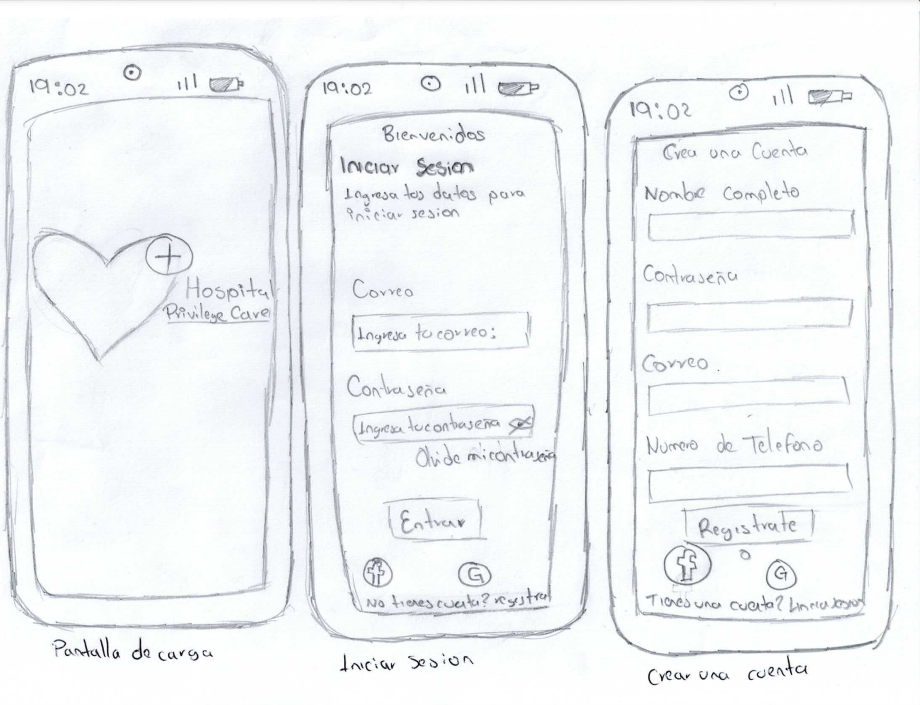 19:02
Hospital
Privilege Care
Pantalla de carga
19:02
Bienvenidos
Iniciar Sesion
Ingresa tus datos para
iniciar sesion
Correo
Ingresa tu correo:
Contraseña
Ingresa tu contraseña
Olvide mi contraseña
Entrar
f G
No tienes cuenta? registrat
Iniciar sesion
19:02
Crea una Cuenta
Nombre Completo
Contraseña
Correo.
Numero de Telefono
Registrate
o
f G
Tienes una cuenta? Inicia sesion
Crear una cuenta